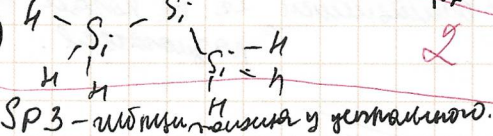 H Si Si
H H Si H
H H
2
SP3-гибридизация у центрального.